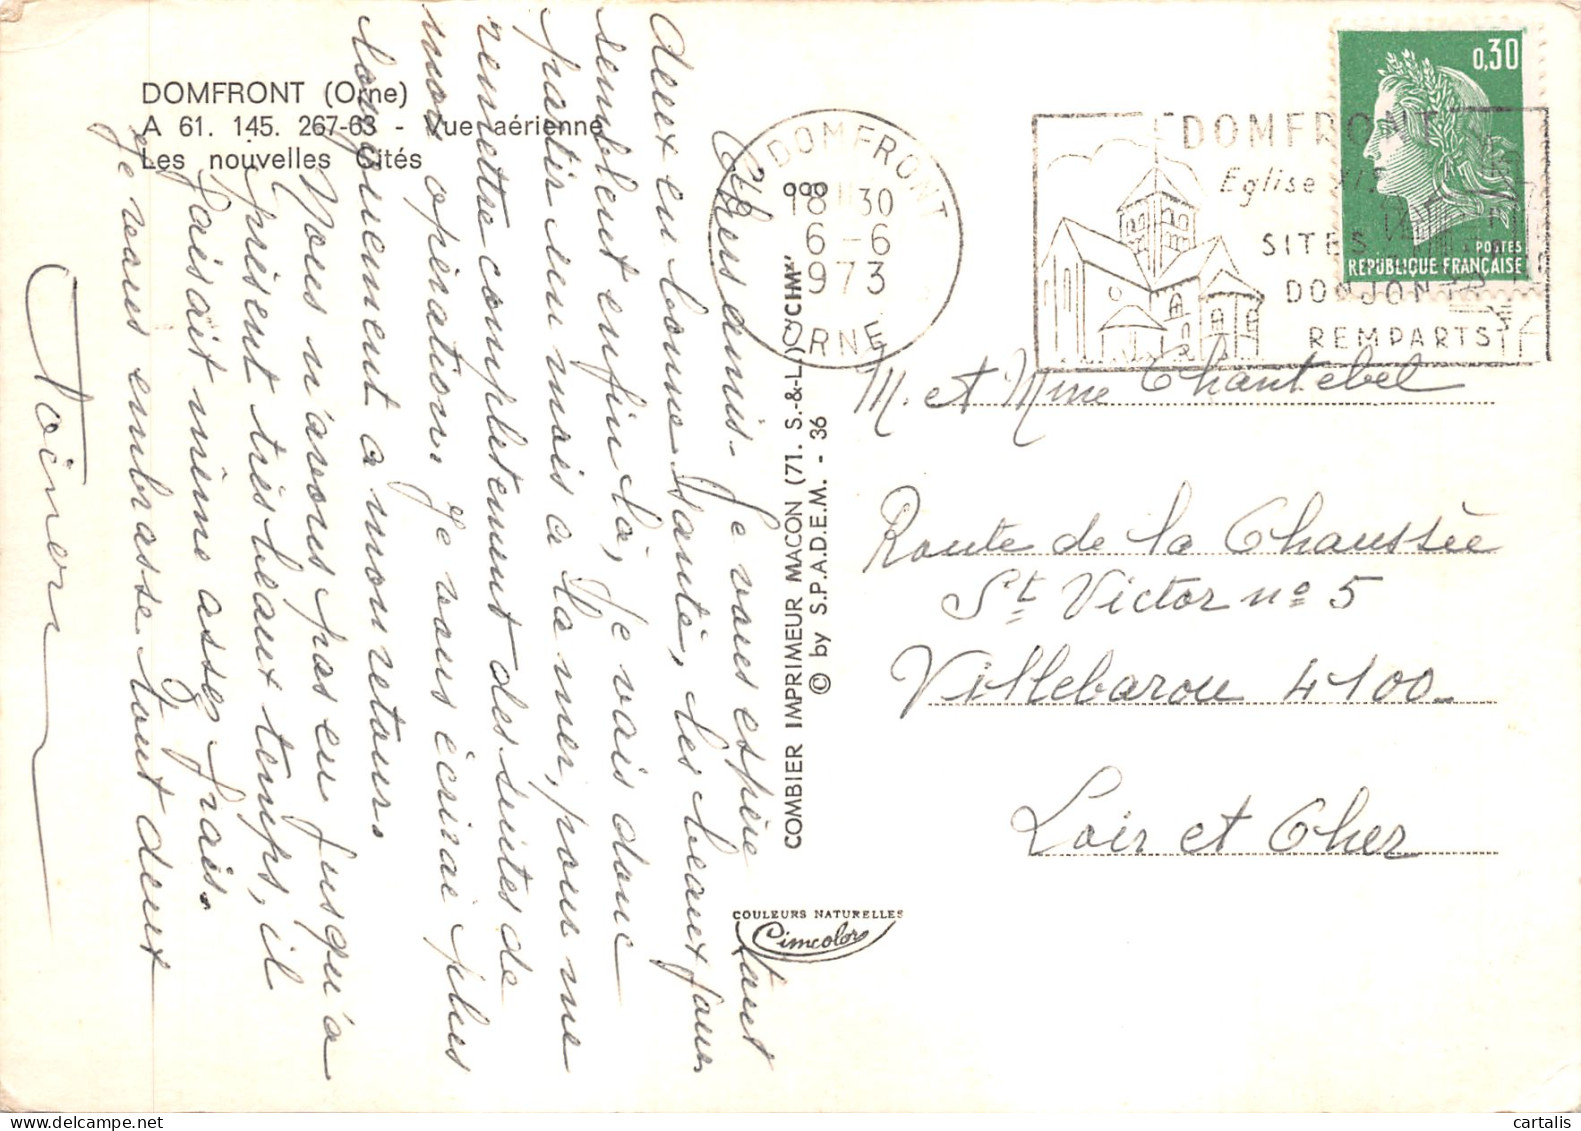 DOMFRONT (Orne)
A 61. 145. 267-63 - Vue aérienne
Les nouvelles Cités
Chers amis - Je vous espère tout
deux en bonne santé, les beaux jour
semblent enfin là, je vais donc
partir un mois a la mer, pour me
remettre completement des suites de
mon opération. Je vous écrirai plus
longuement a mon retour.
Nous n'avons pas eu jusqu'a
présent très beaux temps, il
faisait même assez frais.
Je vous embrasse tout deux
COMBIER IMPRIMEUR MACON (71. S.-&-L.) "CIM"
© by S.P.A.D.E.M. - 36
COULEURS NATURELLES
Cimcolor
DOMFRONT
18 H 30
6 - 6
1973
ORNE
DOMFRONT
Eglise XIe
SITES
DONJON
REMPARTS
0,30
POSTES
REPUBLIQUE FRANÇAISE
M. et Mme Chantebel
Route de la Chaussée
St Victor nº 5
Villebarou 4100
Loir et Cher